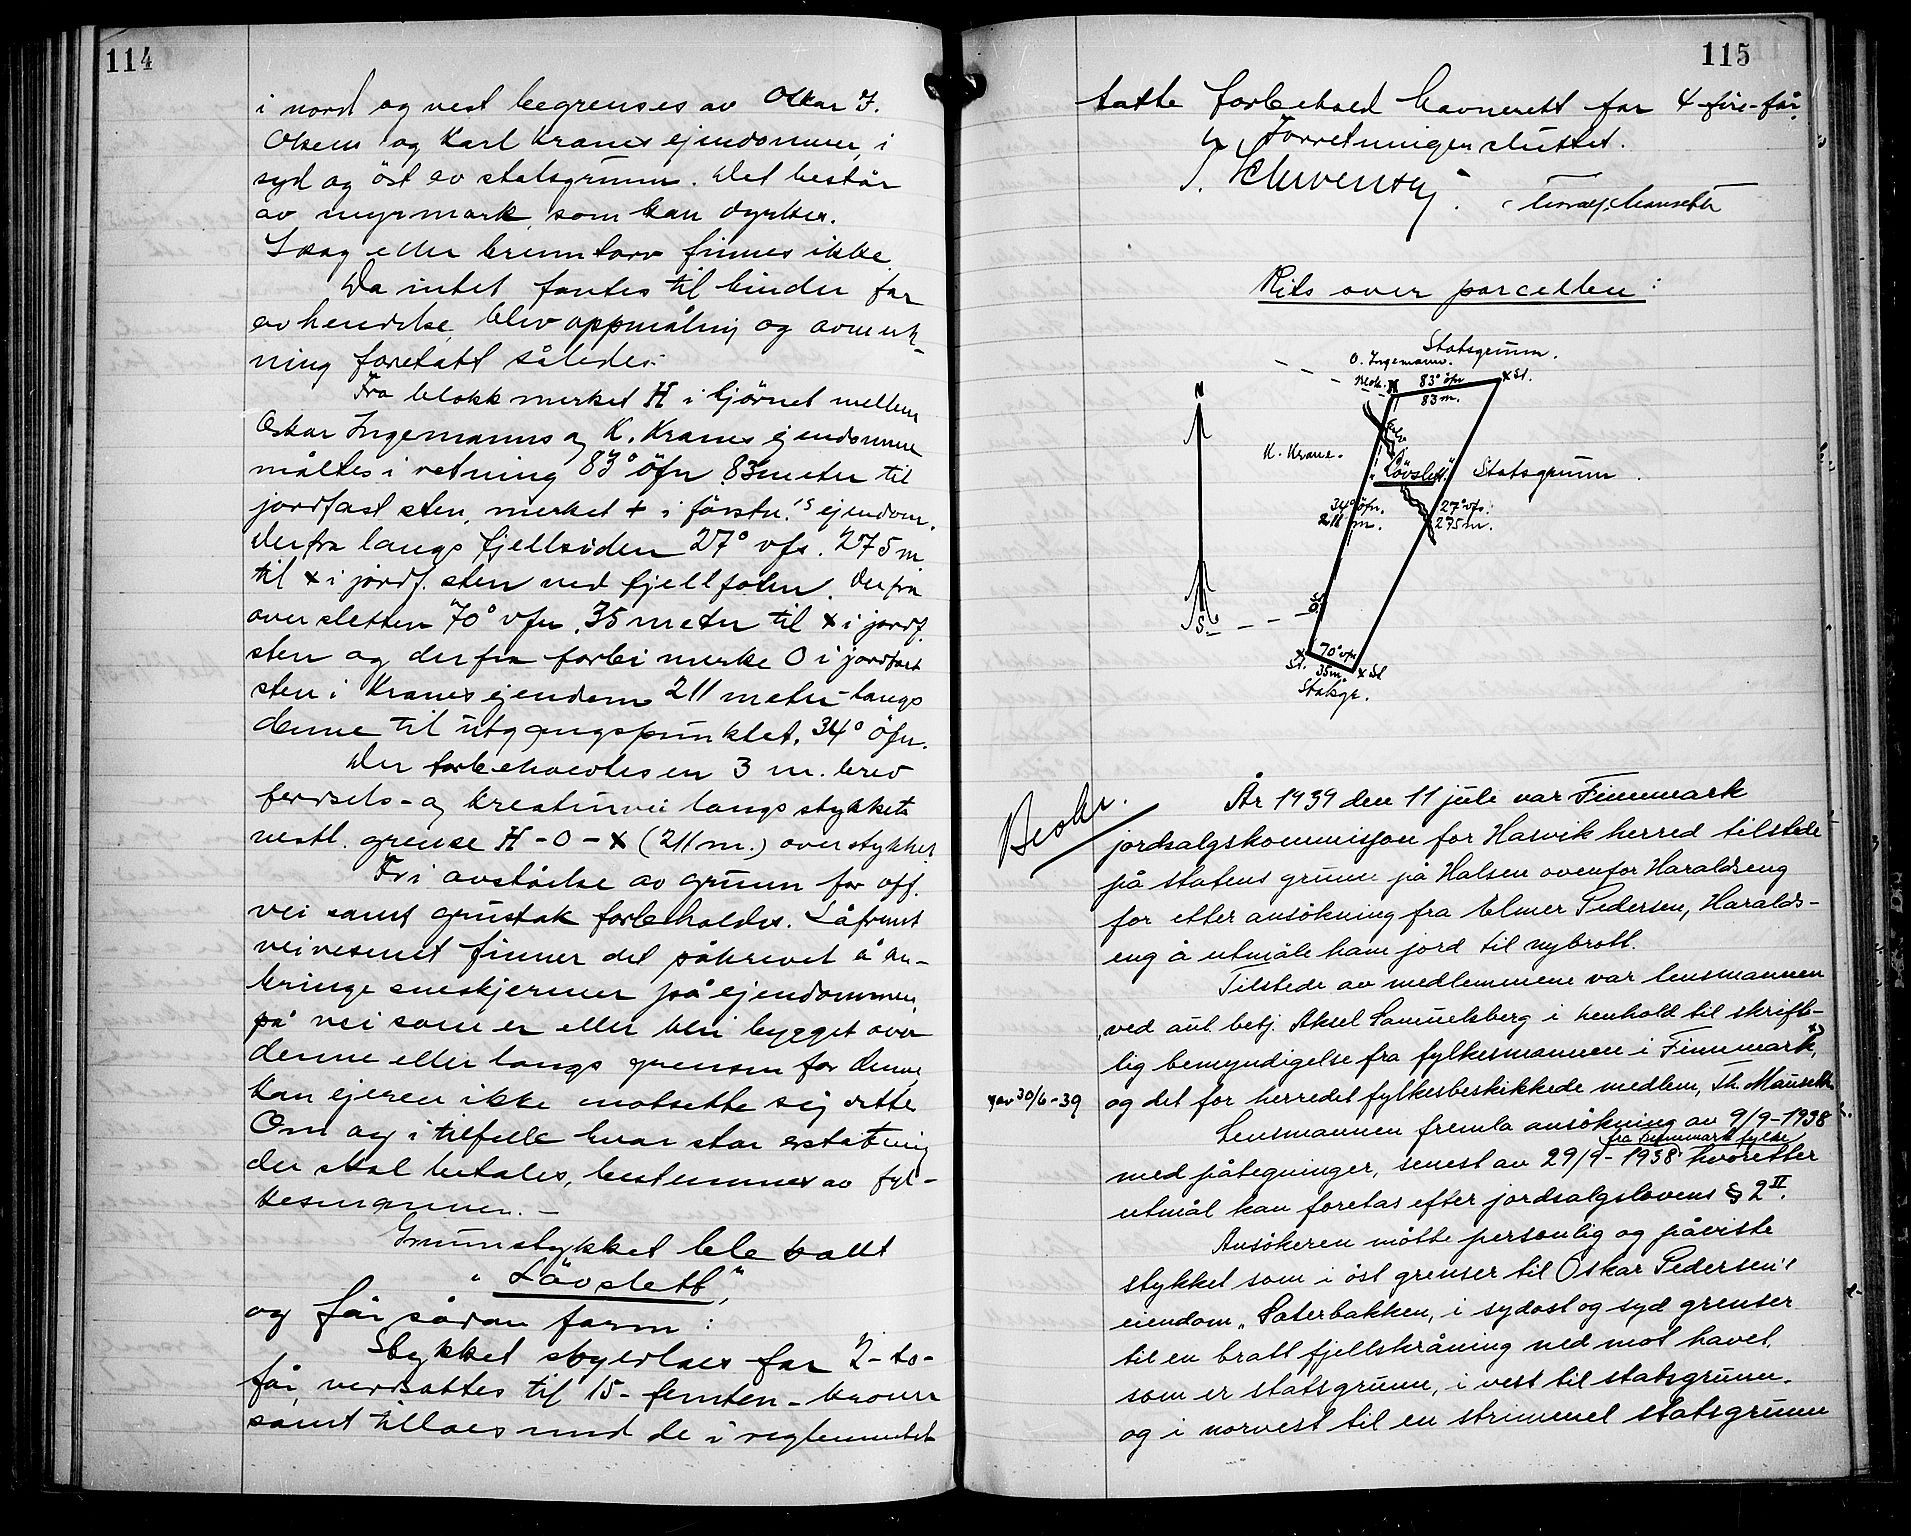 114
i nord og vest begrenses av Oskar I.
Olsens og Karl Kranes ejendommer, i
syd og öst av statsgrunn. Det består
av myrmark, som kan dyrkes.
Skog eller brenntorv finnes ikke.
Da intet fantes til hinder for
avhendelse, blev oppmåling og avmerk-
ning foretatt således:
Fra blokk merket H i hjörnet mellem
Oskar Ingemanns og K. Kranes ejendomme
måltes i retning 83° öfn 83 meter til
jordfast sten, merket + i förstn.'s ejendom.
Derfra langs fjellsiden 27° vfs. 275 m
til x i jordf. sten ved fjellfoten. Derfra
over sletten 70° vfn. 35 meter til x i jordf.
sten og derfra forbi merke O i jordfast
sten i Kranes ejendom 211 meter langs
denne til utgangspunktet. 34° öfn.
Der forbeholdtes en 3 m. bred
ferdsels- og kreaturvei langs stykkets
vestl. grense H - O - x (211 m.) over stykket.
Fri avståelse av grunn for off.
vei samt grustak forbeholdes. Såfremt
veivesenet finner det påkrevet å an-
bringe sneskjermer på ejendommen,
på vei som er eller blir bygget over
denne eller langs grensen for denne,
kan ejeren ikke motsette sig dette.
Om og i tilfelle hvor stor erstatning
der skal betales, bestemmes av fyl-
kesmannen. -
Grunnstykket ble kalt
"Lövslett",
og får sådan form:
Stykket skyldlaes for 2 - to -
får, verdsattes til 15 - femten - kroner
samt tillaes med de i reglementet
115
satte forbehold havnerett for 4 - fire - får.
Forretningen sluttet.
Riss over parcellen:
Statsgrunn.
O. Ingemann.
Blok. H
83° öfn
83 m.
x St.
N
K. Krane.
"Lövslett"
Statsgrunn.
34° öfn.
211 m.
27° vfs.
275 m.
St.
O
S.
x
St.
70° vfn
35 m.
x St
Statsgr.
Beskr.
År 1939 den 11 juli var Finnmark
jordsalgskommisjon for Hasvik herred tilstede
på statens grunn på Halsen ovenfor Haraldseng
for etter ansökning fra Elmer Pedersen, Haralds-
eng å utmåle ham jord til nybrott.
Tilstede av medlemmene var lensmannen
ved aut. betj. Aksel Samuelsberg i henhold til skrift-
lig bemyndigelse fra fylkesmannen i Finnmark, x)
x) av 30/6-39
og det for herredet fylkesbeskikkede medlem, Th. Mauseth.
Lensmannen fremla ansökning av 9/9-1938
fra Finnmark fylke
med påtegninger, senest av 29/9-1938 hvoretter
utmål kan foretas efter jordsalgslovens § 2 II.
Ansökeren mötte personlig og påviste
stykket som i öst grenser til Oskar Pedersen's
eiendom "Saterbakken, i sydost og syd grenser
til en bratt fjellskråning ned mot havet,
som er statsgrunn, i vest til statsgrunn.
og i norvest til en strimmel statsgrunn